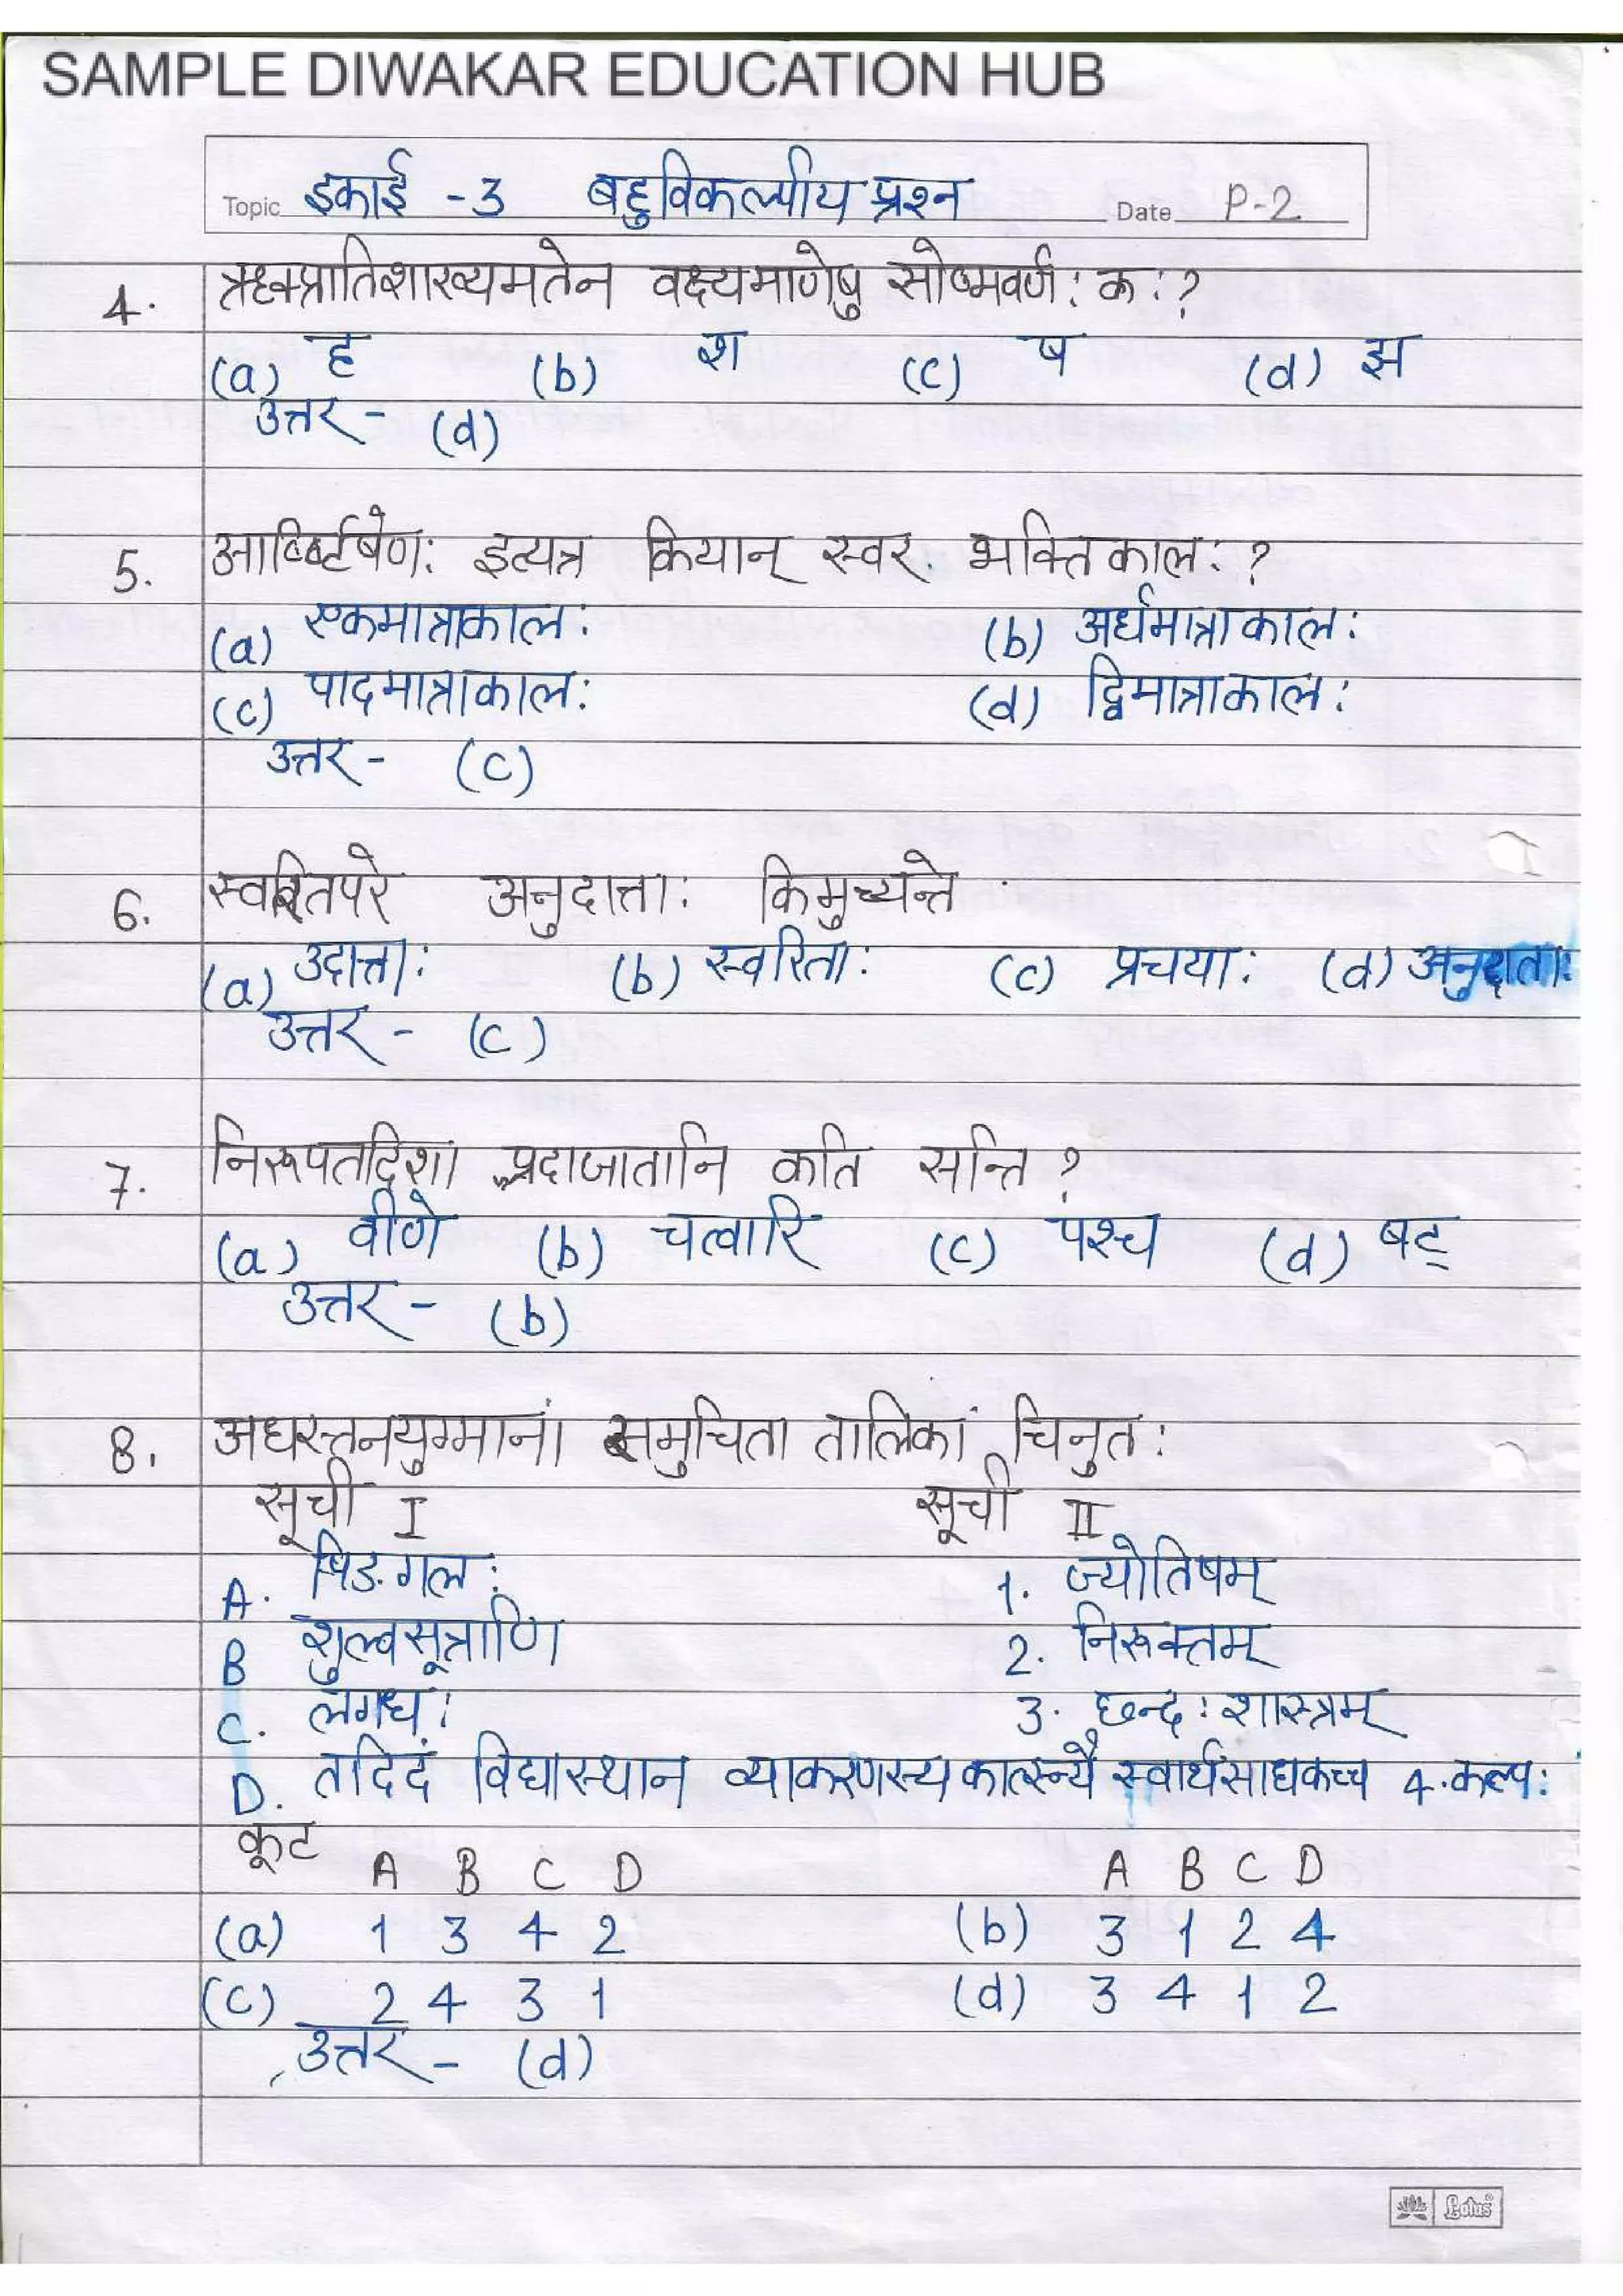 SAMPLE DIWAKAR EDUCATION HUB
Topic इकाई - 3 बहुविकल्पीय प्रश्न Date P-2
4. ऋक्प्रातिशाख्यमतेन वक्ष्यमाणेषु सोष्मवर्ण: क: ?
(a) ह (b) श (c) ष (d) झ
उत्तर - (d)
5. इत्यत्र कियान् स्वर. भक्तिकाल: ?
(a) एकमात्राकाल: (b) अर्धमात्राकाल:
(c) पादमात्राकाल: (d) द्विमात्राकाल:
उत्तर - (c)
6. स्वरितपरे अनुदात्ता: किमुच्यन्ते
(a) उदात्ता: (b) स्वरिता: (c) प्रचया: (d) अनुदाता:
उत्तर - (c)
7. निरूपतदिशा प्रदाजातानि कति सन्ति ?
(a) वीणे (b) चत्वारि (c) पश्च (d) षट्
उत्तर - (b)
8. अधस्तनयुग्मानां समुचिता तालिकां चिनुत:
सूची I सूची II
A. पिङगल: 1. ज्योतिषम्
B शुल्वसूत्राणि 2. निरूक्तम्
C. लगध: 3. छन्द: शास्त्रम्
D. तदिदं विद्यास्थान व्याकरणस्य कार्त्स्न्यै स्वार्थसाधकच्च 4. कल्प:
कूट A B C D A B C D
(a) 1 3 4 2 (b) 3 1 2 4
(c) 2 4 3 1 (d) 3 4 1 2
उत्तर - (d)
Lotus